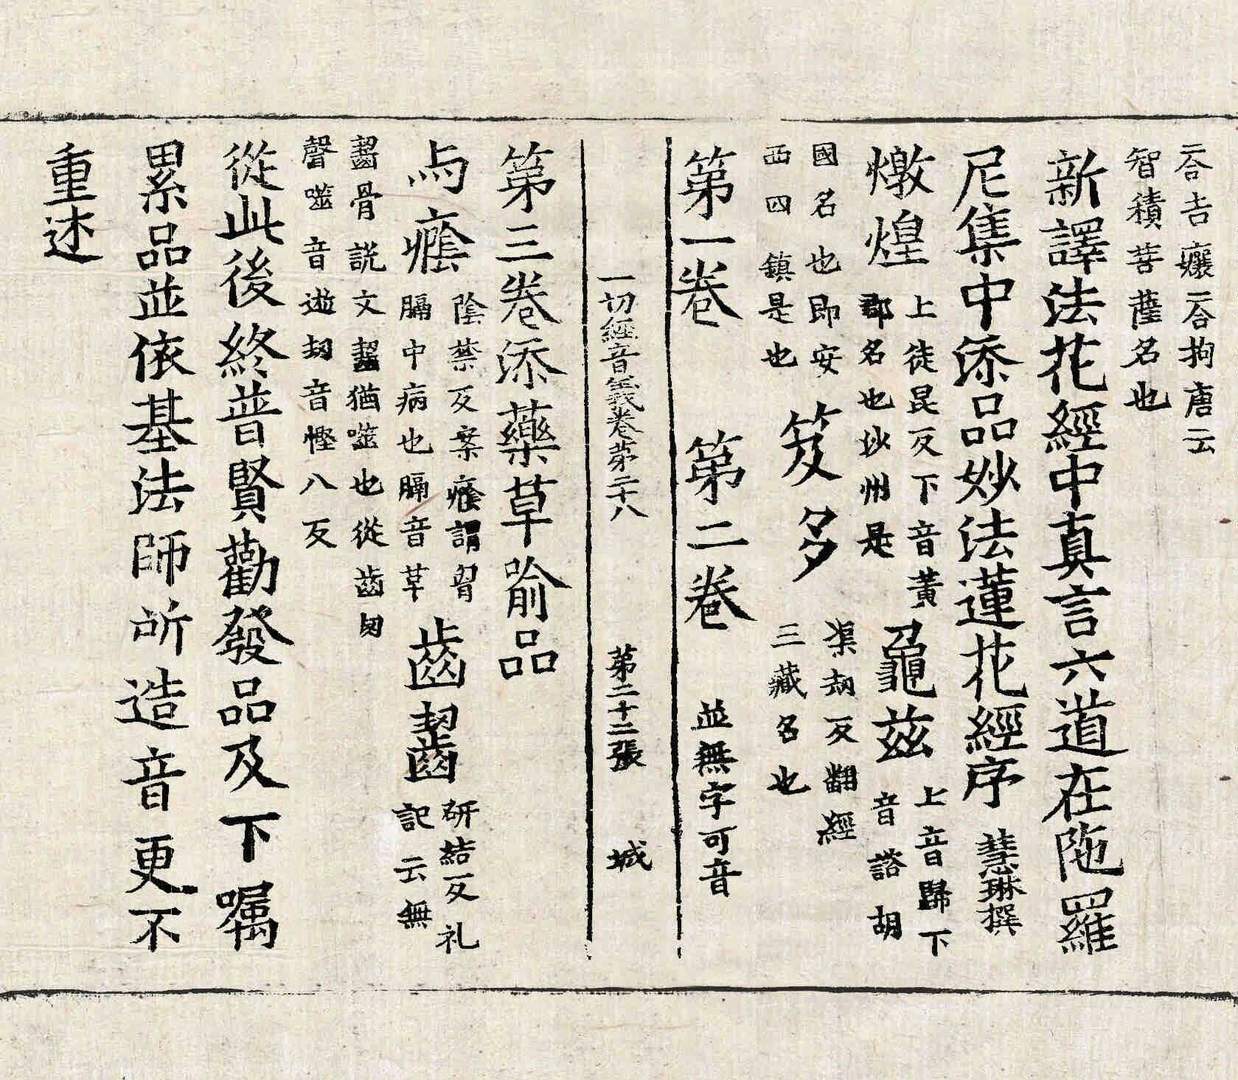 二合吉孃二合拘唐云
智積菩薩名也
新譯法花經中真言六道在陁羅
尼集中添品妙法蓮花經序 慧琳撰
燉煌 上徒昆反下音黃郡名也沙州是 龜茲 上音歸下音諮胡
國名也即安西四鎮是也 笈多 渠刼反翻經三藏名也
第一卷 第二卷 並無字可音
一切經音義卷第二十八 第二十二張 城
第三卷添藥草喻品
与癊 陰禁反案癊謂胷膈中病也膈音草 齒齧 研結反礼記云無
齧骨説文齧猶噬也從齒㓞
聲噬音逝㓞音慳八反
從此後終普賢勸發品及下囑
累品並依基法師所造音更不
重述